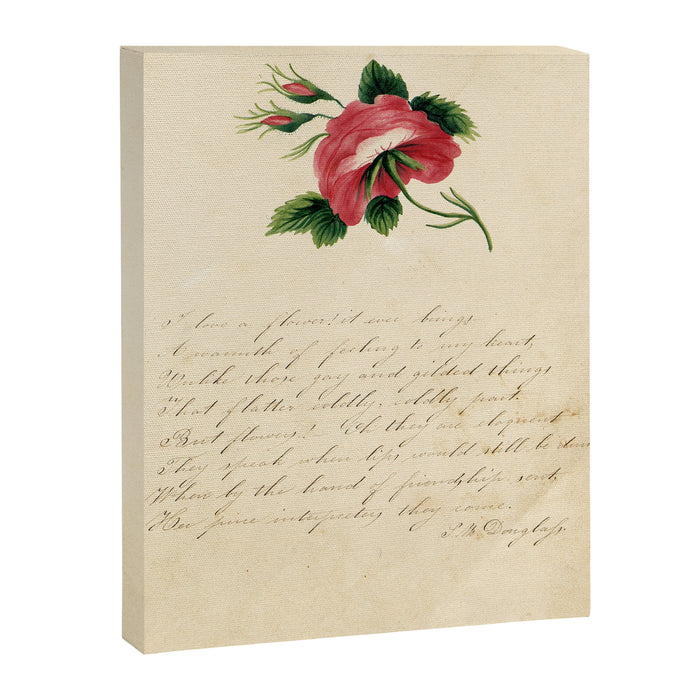 I love a flower! it ever brings
A warmth of feeling to my heart,
Unlike those gay and gilded things
That flatter coldly, coldly part.
But flowers! Oh they are eloquent
They speak when lips would still be dum
When by the hand of friendship sent,
Her pure interpreters they come.
S. M. Douglass.